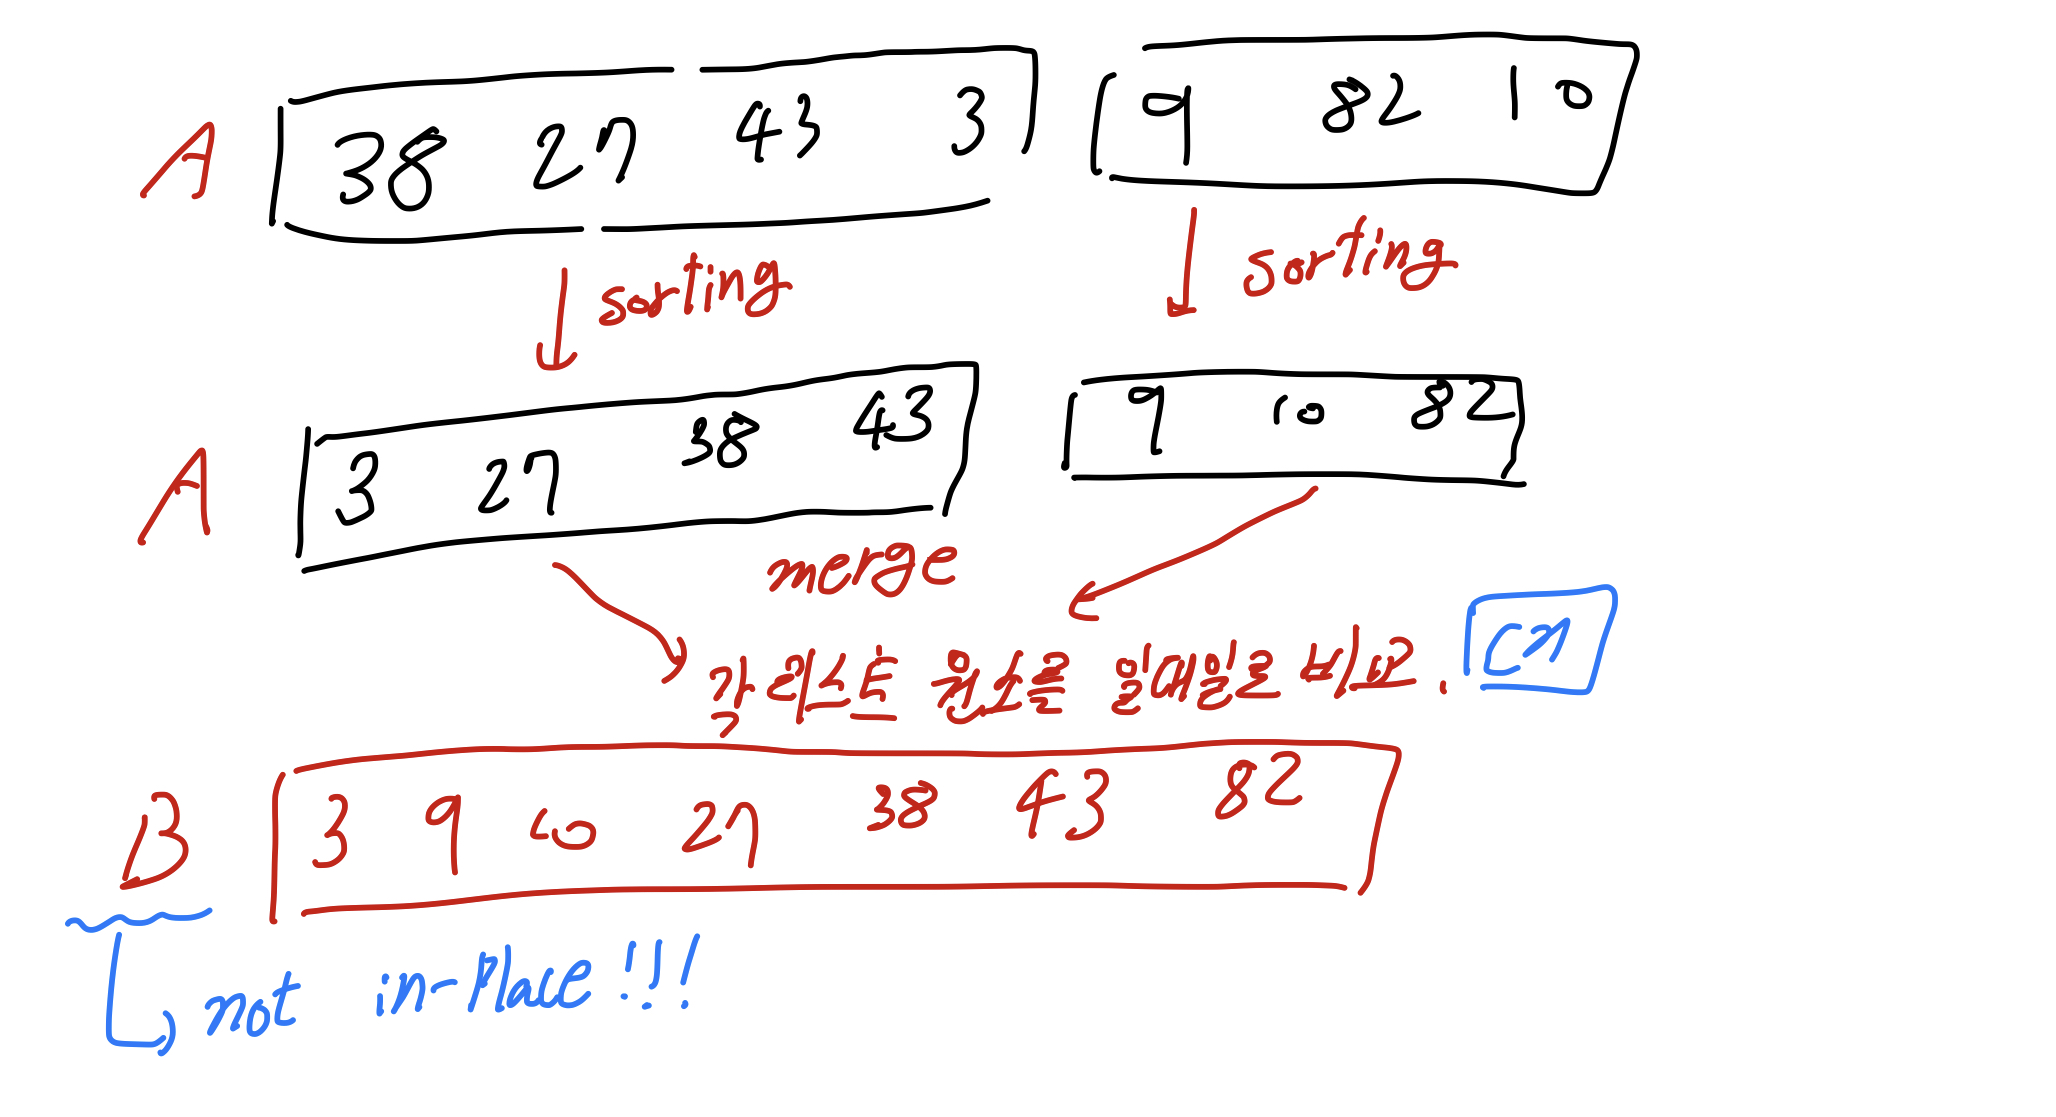 A 38 27 43 3 9 82 10
sorting sorting
A 3 27 38 43 9 10 82
merge
각 리스트 원소를 일대일로 비교. cn
B 3 9 10 27 38 43 82
not in-place !!!